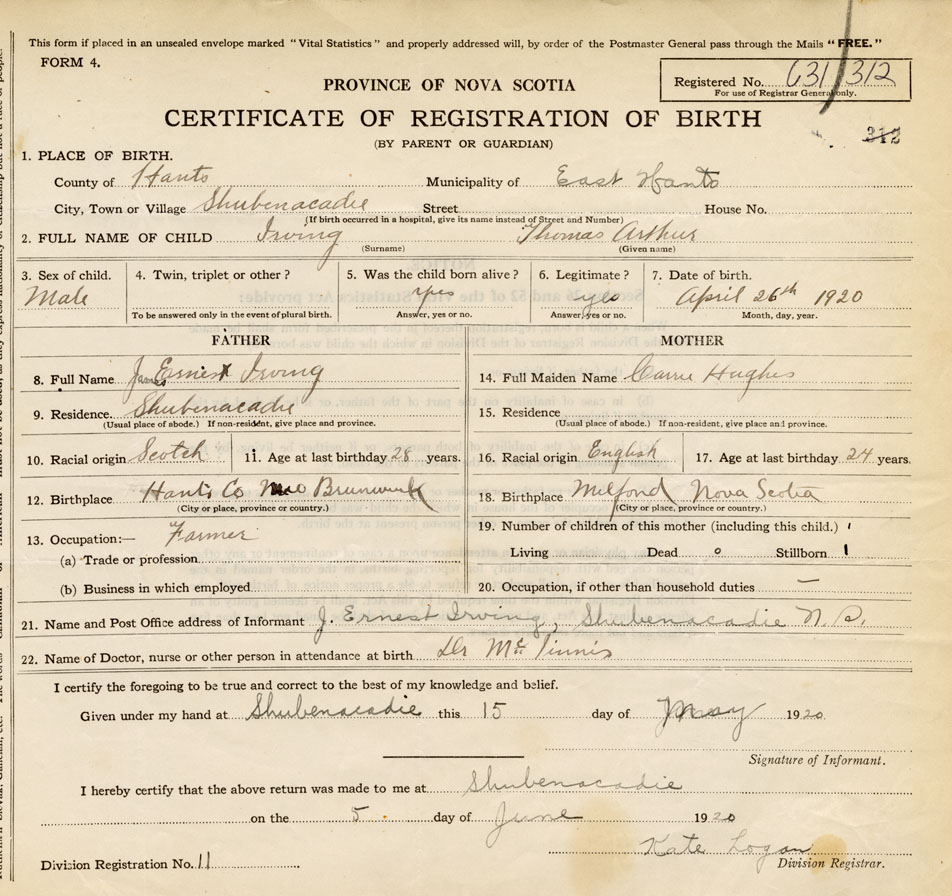 This form if placed in an unsealed envelope marked "Vital Statistics" and properly addressed will, by order of the Postmaster General pass through the Mails "FREE."
FORM 4.
Registered No. 631 312
For use of Registrar General only.
PROVINCE OF NOVA SCOTIA
CERTIFICATE OF REGISTRATION OF BIRTH
312
(BY PARENT OR GUARDIAN)
1. PLACE OF BIRTH.
County of Hants Municipality of East Hants
City, Town or Village Shubenacadie Street House No.
(If birth occurred in a hospital, give its name instead of Street and Number)
2. FULL NAME OF CHILD Irving Thomas Arthur
(Surname) (Given name)
3. Sex of child. 4. Twin, triplet or other? 5. Was the child born alive? 6. Legitimate? 7. Date of birth.
Male yes yes April 26th 1920
To be answered only in the event of plural birth. Answer, yes or no. Answer, yes or no. Month, day, year.
FATHER MOTHER
8. Full Name James Ernest Irving 14. Full Maiden Name Carrie Hughes
9. Residence. Shubenacadie 15. Residence
(Usual place of abode.) If non-resident, give place and province. (Usual place of abode.) If non-resident, give place and province.
10. Racial origin Scotch 11. Age at last birthday 28 years. 16. Racial origin English 17. Age at last birthday 24 years.
12. Birthplace Hants Co Brunswick 18. Birthplace Milford Nova Scotia
(City or place, province or country.) (City or place, province or country.)
13. Occupation:— Farmer 19. Number of children of this mother (including this child.) 1
(a) Trade or profession Living Dead 0 Stillborn 1
(b) Business in which employed 20. Occupation, if other than household duties —
21. Name and Post Office address of Informant J. Ernest Irving, Shubenacadie N.S.
22. Name of Doctor, nurse or other person in attendance at birth Dr
I certify the foregoing to be true and correct to the best of my knowledge and belief.
Given under my hand at Shubenacadie this 15 day of May 1920
Signature of Informant.
I hereby certify that the above return was made to me at Shubenacadie
on the 5 day of June 1920
Kate Logan
Division Registration No. 11 Division Registrar.